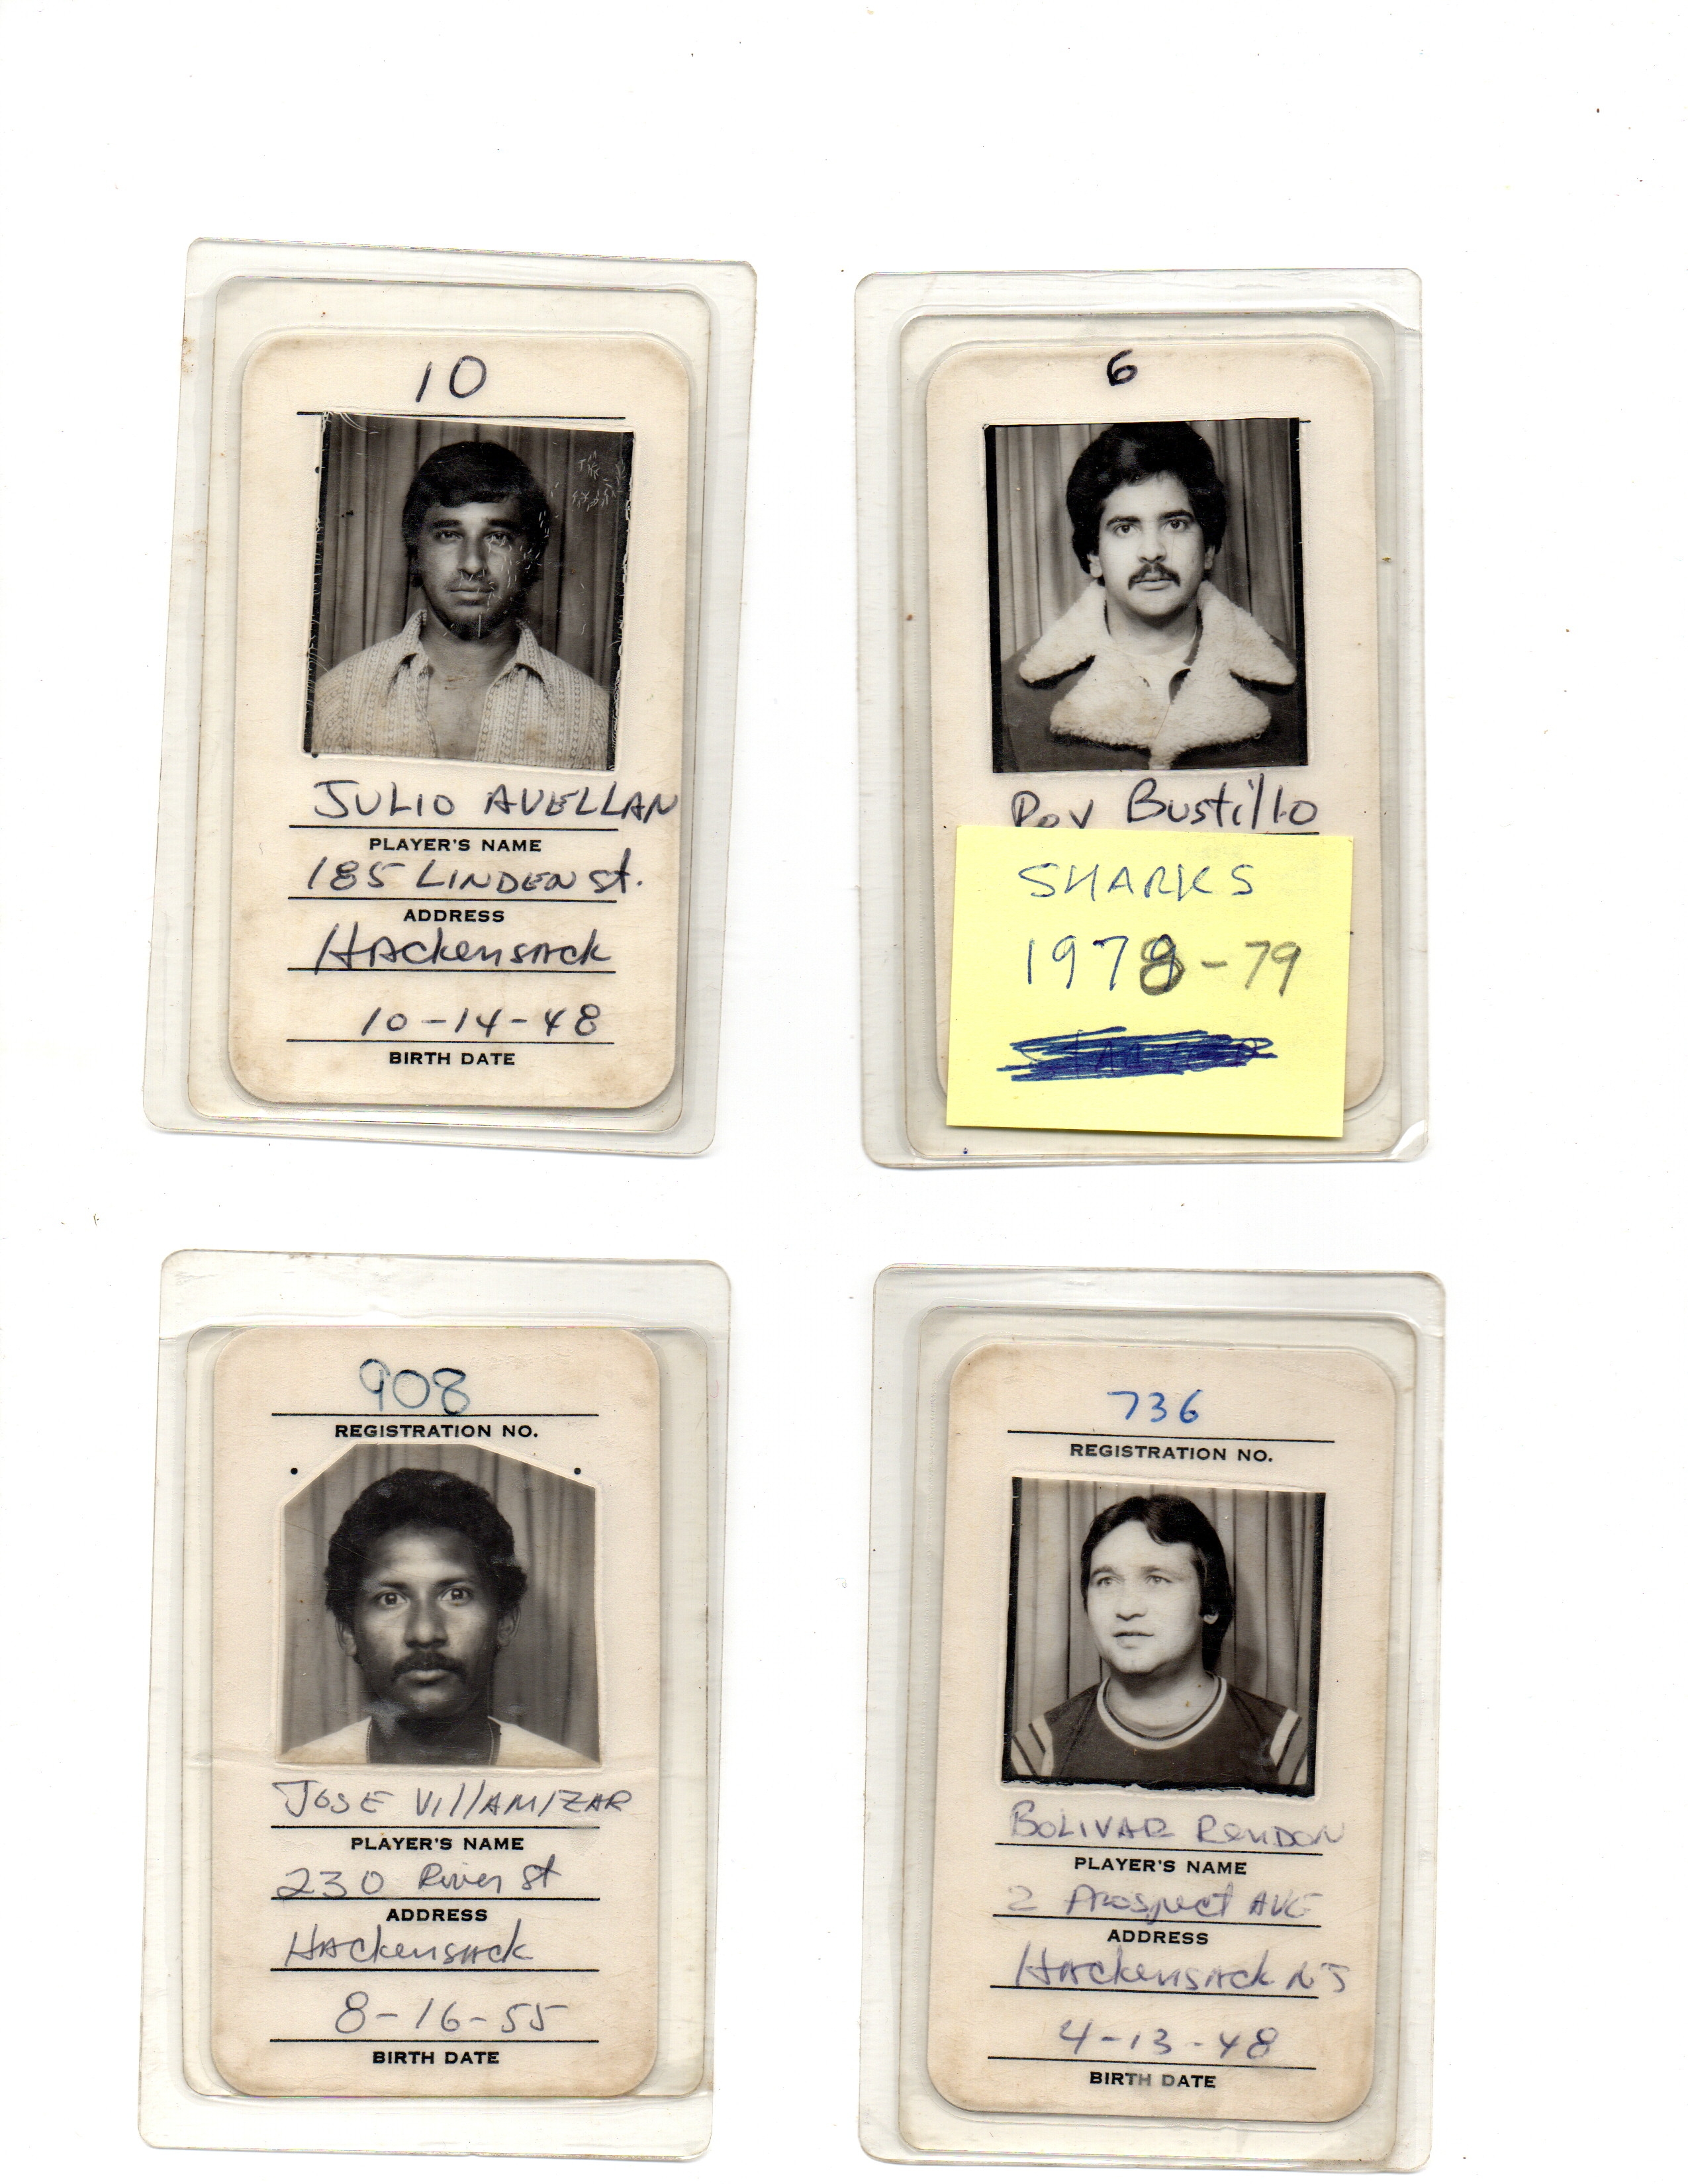 10
JULIO AVELLAN
PLAYER'S NAME
185 LINDEN St.
ADDRESS
HACkensAck
10-14-48
BIRTH DATE
6
Bustillo
SHARKS
1978-79
908
REGISTRATION NO.
JOSE VillAMIZAR
PLAYER'S NAME
230 River St
ADDRESS
HACkensAck
8-16-55
BIRTH DATE
736
REGISTRATION NO.
BOLIVAR RENDON
PLAYER'S NAME
2 Prospect AVE
ADDRESS
HACkensAck NJ
4-13-48
BIRTH DATE